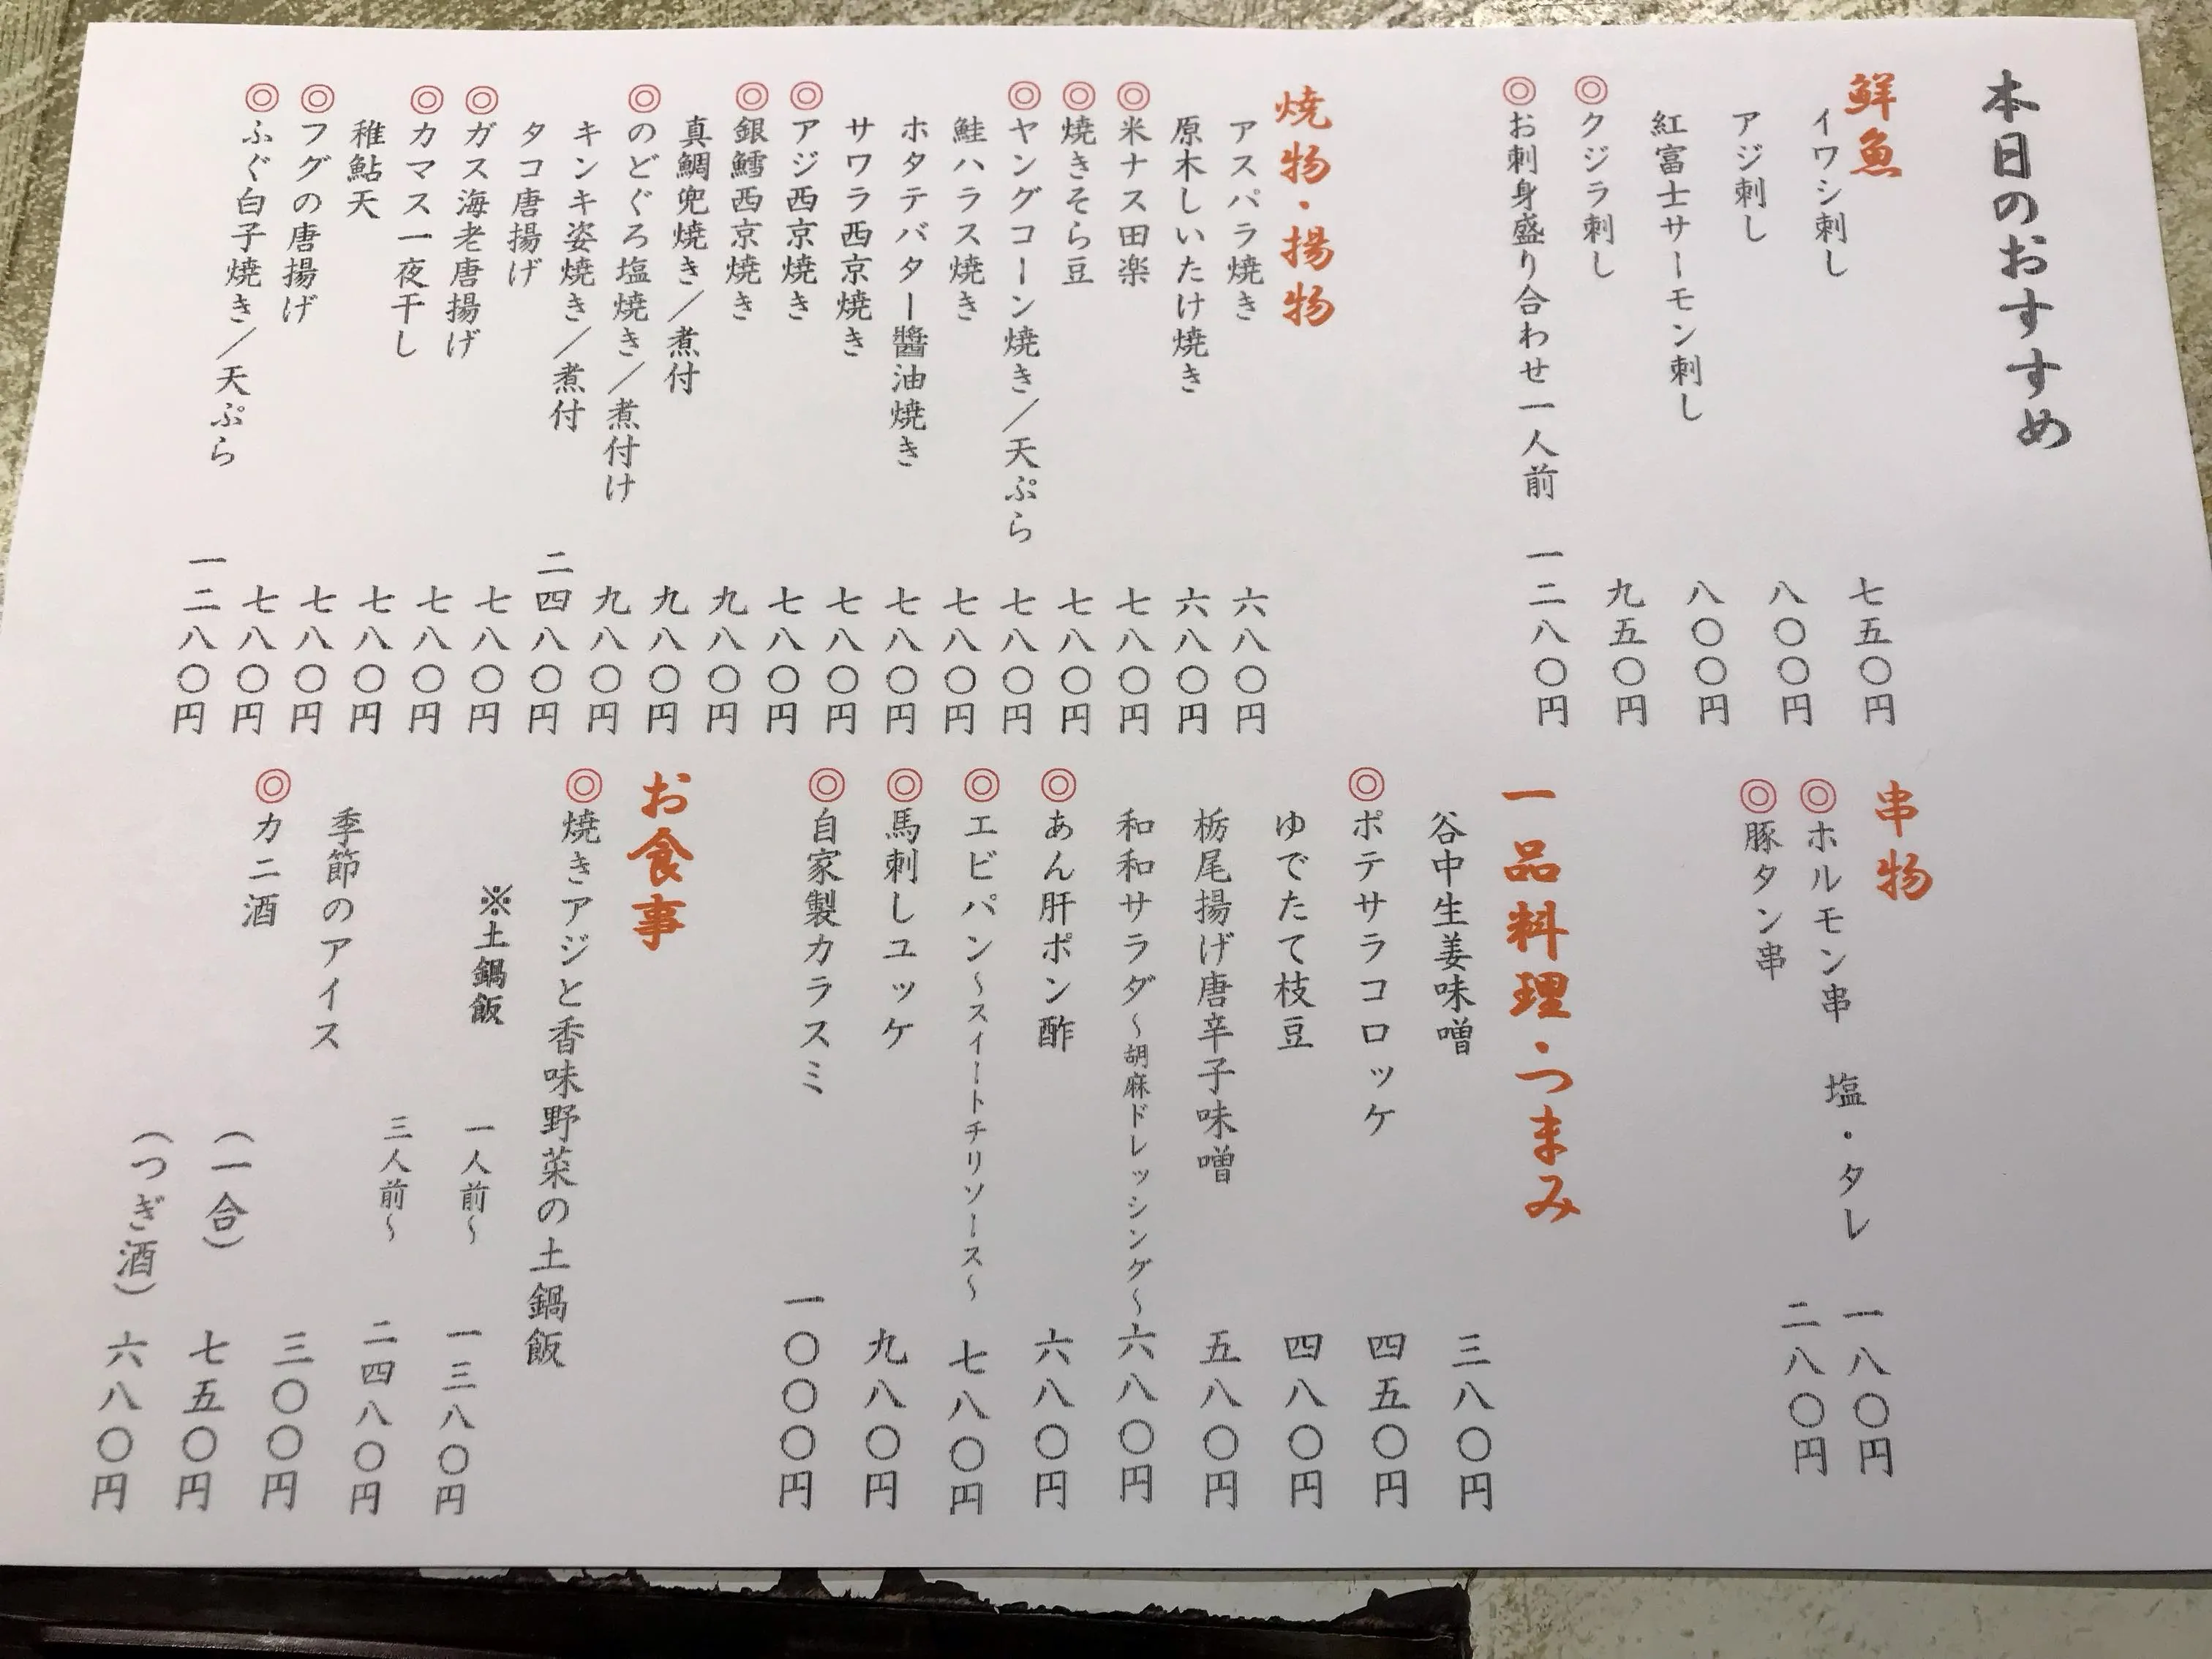 本日のおすすめ
鮮魚
イワシ刺し 七五〇円
アジ刺し 八〇〇円
紅富士サーモン刺し 八〇〇円
◎クジラ刺し 九五〇円
◎お刺身盛り合わせ一人前 一二八〇円
焼物・揚物
アスパラ焼き 六八〇円
原木しいたけ焼き 六八〇円
◎米ナス田楽 七八〇円
◎焼きそら豆 七八〇円
◎ヤングコーン焼き/天ぷら 七八〇円
鮭ハラス焼き 七八〇円
ホタテバター醬油焼き 七八〇円
サワラ西京焼き 七八〇円
◎アジ西京焼き 七八〇円
◎銀鱈西京焼き 九八〇円
真鯛兜焼き/煮付 九八〇円
◎のどぐろ塩焼き/煮付け 九八〇円
キンキ姿焼き/煮付 二四八〇円
タコ唐揚げ 七八〇円
◎ガス海老唐揚げ 七八〇円
◎カマス一夜干し 七八〇円
稚鮎天 七八〇円
◎フグの唐揚げ 七八〇円
◎ふぐ白子焼き/天ぷら 一二八〇円
串物
◎ホルモン串 塩・タレ 一八〇円
◎豚タン串 二八〇円
一品料理・つまみ
谷中生姜味噌 三八〇円
◎ポテサラコロッケ 四五〇円
ゆでたて枝豆 四八〇円
栃尾揚げ唐辛子味噌 五八〇円
和和サラダ~胡麻ドレッシング~ 六八〇円
◎あん肝ポン酢 六八〇円
◎エビパン~スイートチリソース~ 七八〇円
◎馬刺しユッケ 九八〇円
◎自家製カラスミ 一〇〇〇円
お食事
◎焼きアジと香味野菜の土鍋飯
※土鍋飯 一人前~ 一三八〇円
三人前~ 二四八〇円
季節のアイス 三〇〇円
◎カニ酒 (一合) 七五〇円
(つぎ酒) 六八〇円